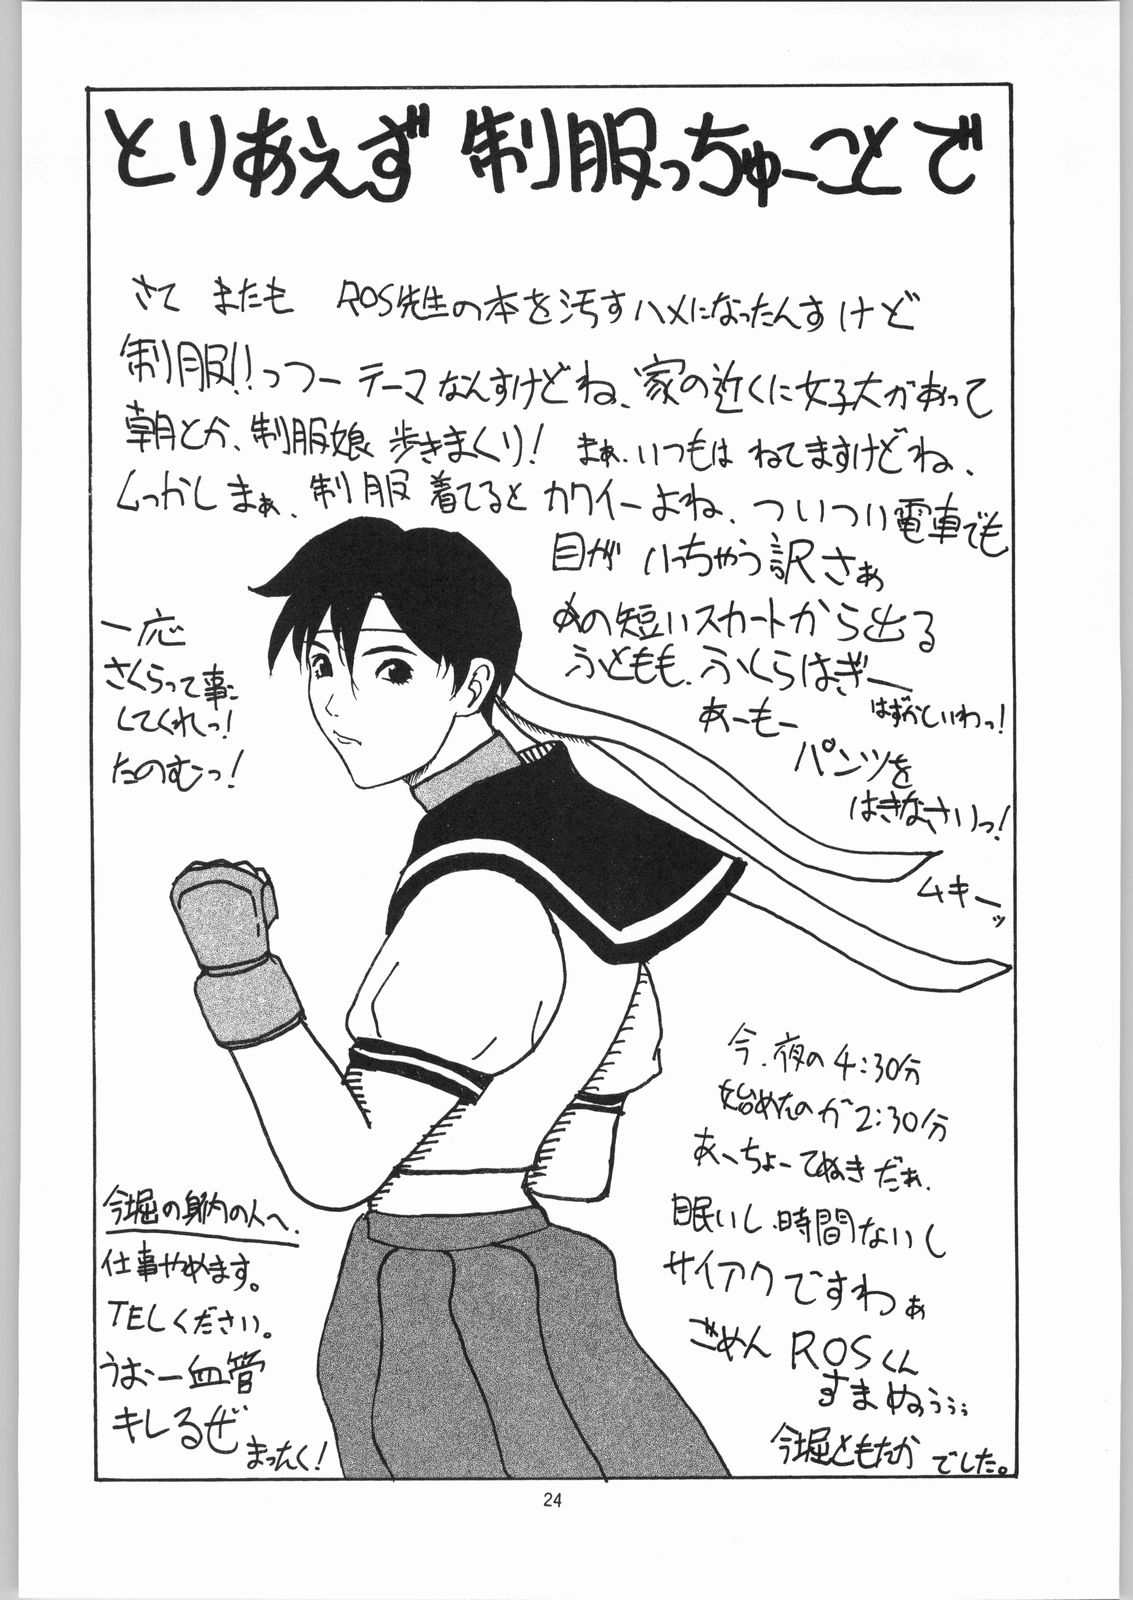 とりあえず 制服っちゅーことで
さて またも ROS先生の本を汚すハメになったんすけど
制服!!っつーテーマなんすけどね、家の近くに女子大があって
朝とか、制服娘 歩きまくり! まぁ、いつもは ねてますけどね、
しっかしまぁ、制服 着てると カワイーよね、ついつい電車でも
目が いっちゃう訳さぁ
あの短いスカートから出る
ふともも、ふくらはぎー
はずかしいわっ!
あーもー
パンツを
はきなさいっ!
ムキーッ
一応
さくらって事に
してくれっ!
たのむっ!
今、夜の4:30分
始めたのが2:30分
あーちょーてぬきだぁ、
眠いし、時間ないし
サイアクですわぁ
ごめん ROSくん
すまぬぅぅぅ
今堀ともたか でした。
今堀の身内の人へ、
仕事やめます。
TELください。
うおー血管
キレるぜ
まったく!
24